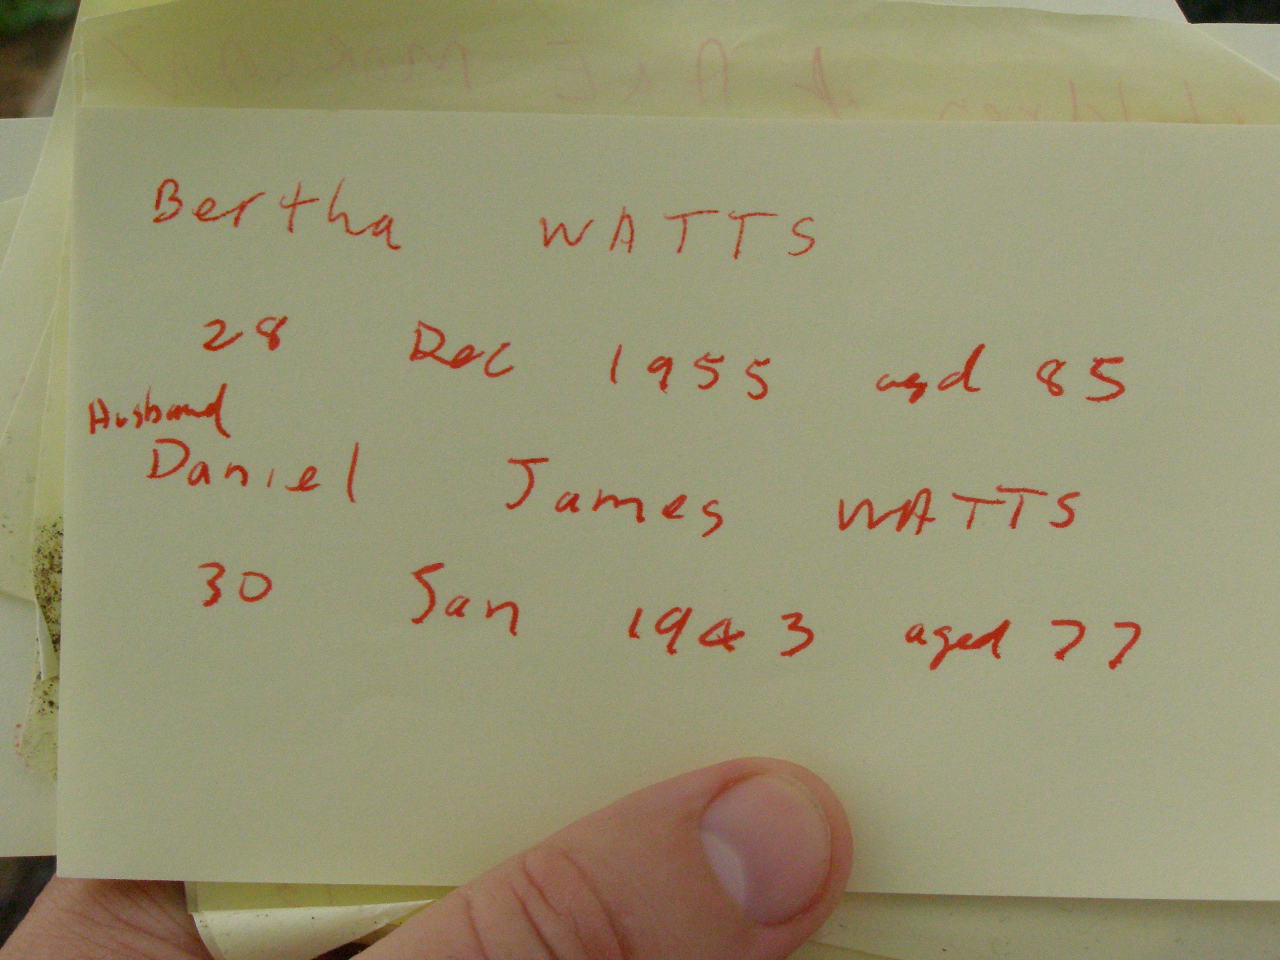 Bertha WATTS
28 Dec 1955 aged 85
Husband
Daniel James WATTS
30 Jan 1943 aged 77